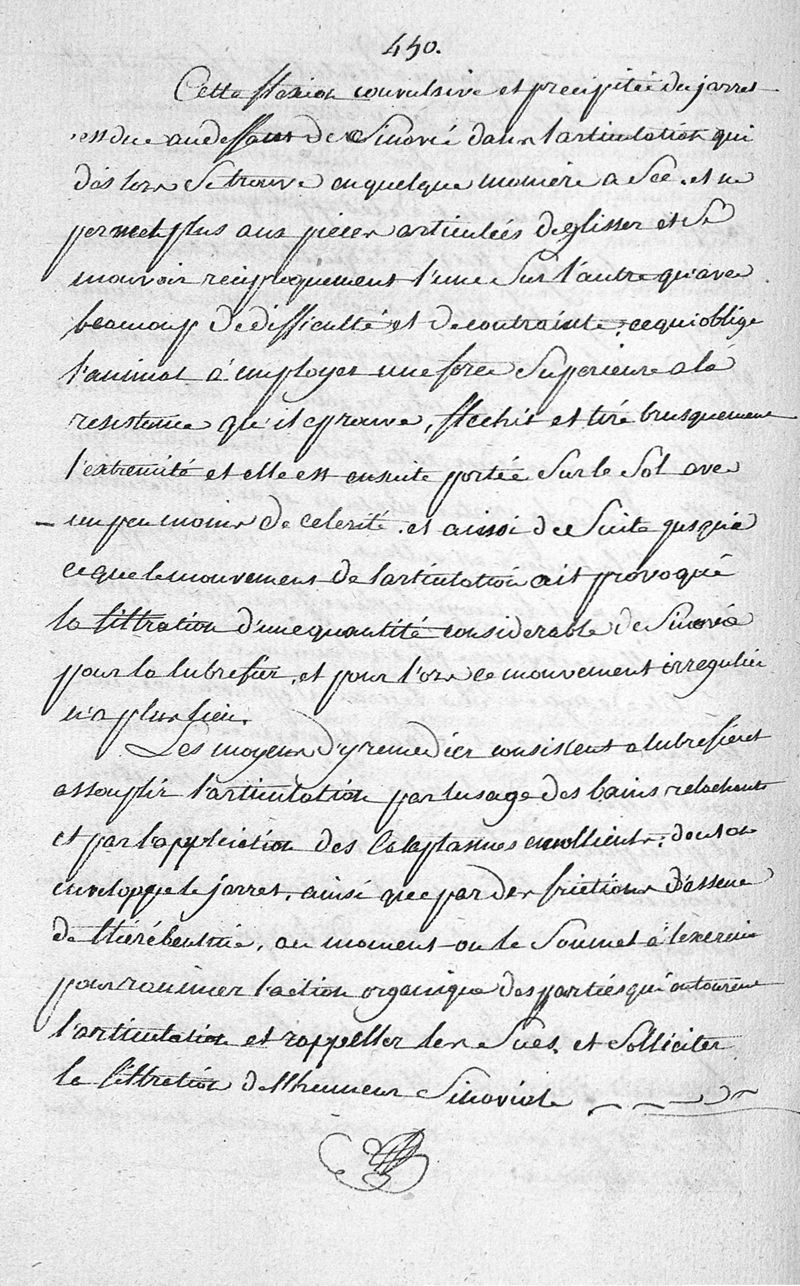 450.
Cette flexion convulsive et precipitée du jarret
est due au deffaut de Sinovie dans l'articulation qui
dès lors se trouve en quelque maniere a Sec, et ne
permet plus aux pièces articulées de glisser et se
mouvoir reciproquement l'une Sur l'autre qu'avec
beaucoup de difficulté et de contrainte, ce qui oblige
l'animal à employer une force Superieure a la
resistence qu'il eprouve, flechit et tire brusquement
l'extremité et elle est ensuite portée Sur le Sol avec
un peu moins de celerité, et ainsi de Suite jusqu'a
ce que le mouvement de l'articulation ait provoqué
la filtration d'une quantité considerable de Sinovie
pour la lubrefier, et pour l'ors ce mouvement irregulier
n'a plus lieu.
Les moyens d'y remedier consistent a lubrefier et
assouplir l'articulation par lusage des bains relachents
et par l'application des Cataplasmes emollients, dont on
enveloppe le jarret, ainsi que par des frictions d'essence
de thérébentine, au moment ou le Soumet à l'exercice
pour ranimer l'action organique des parties qui entourent
l'articulation et rappeller les Sucs, et Solliciter
la filtration de l'humeur Sinoviale